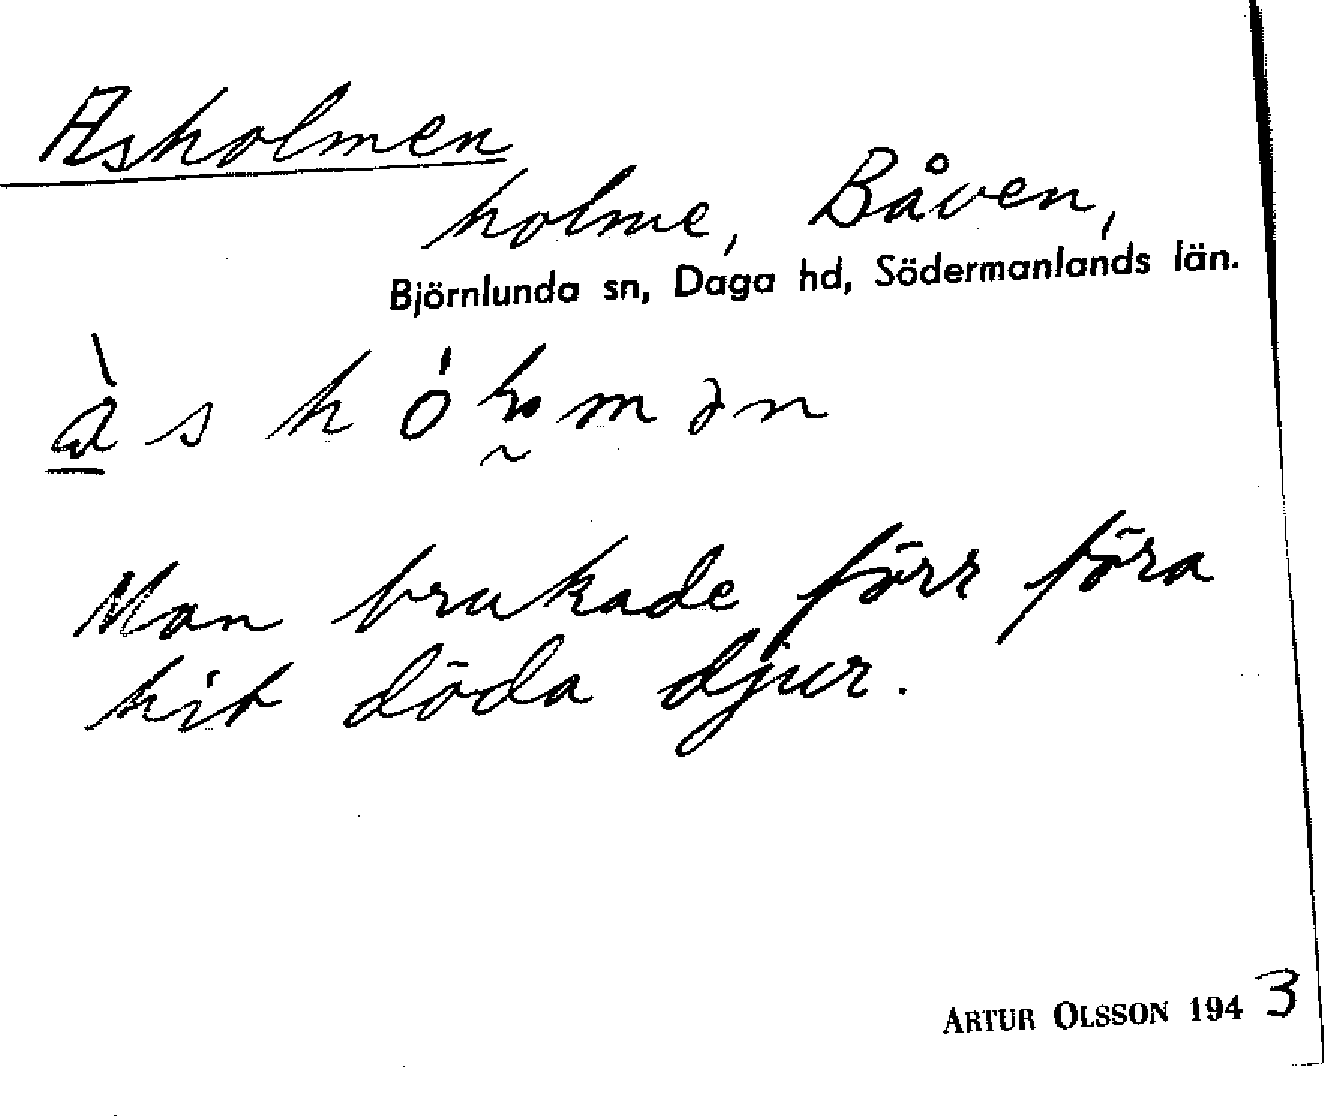 Asholmen
holme, Båven,
Björnlunda sn, Daga hd, Södermanlands län.
Man brukade förr föra
hit döda djur.
ARTUR OLSSON 1943